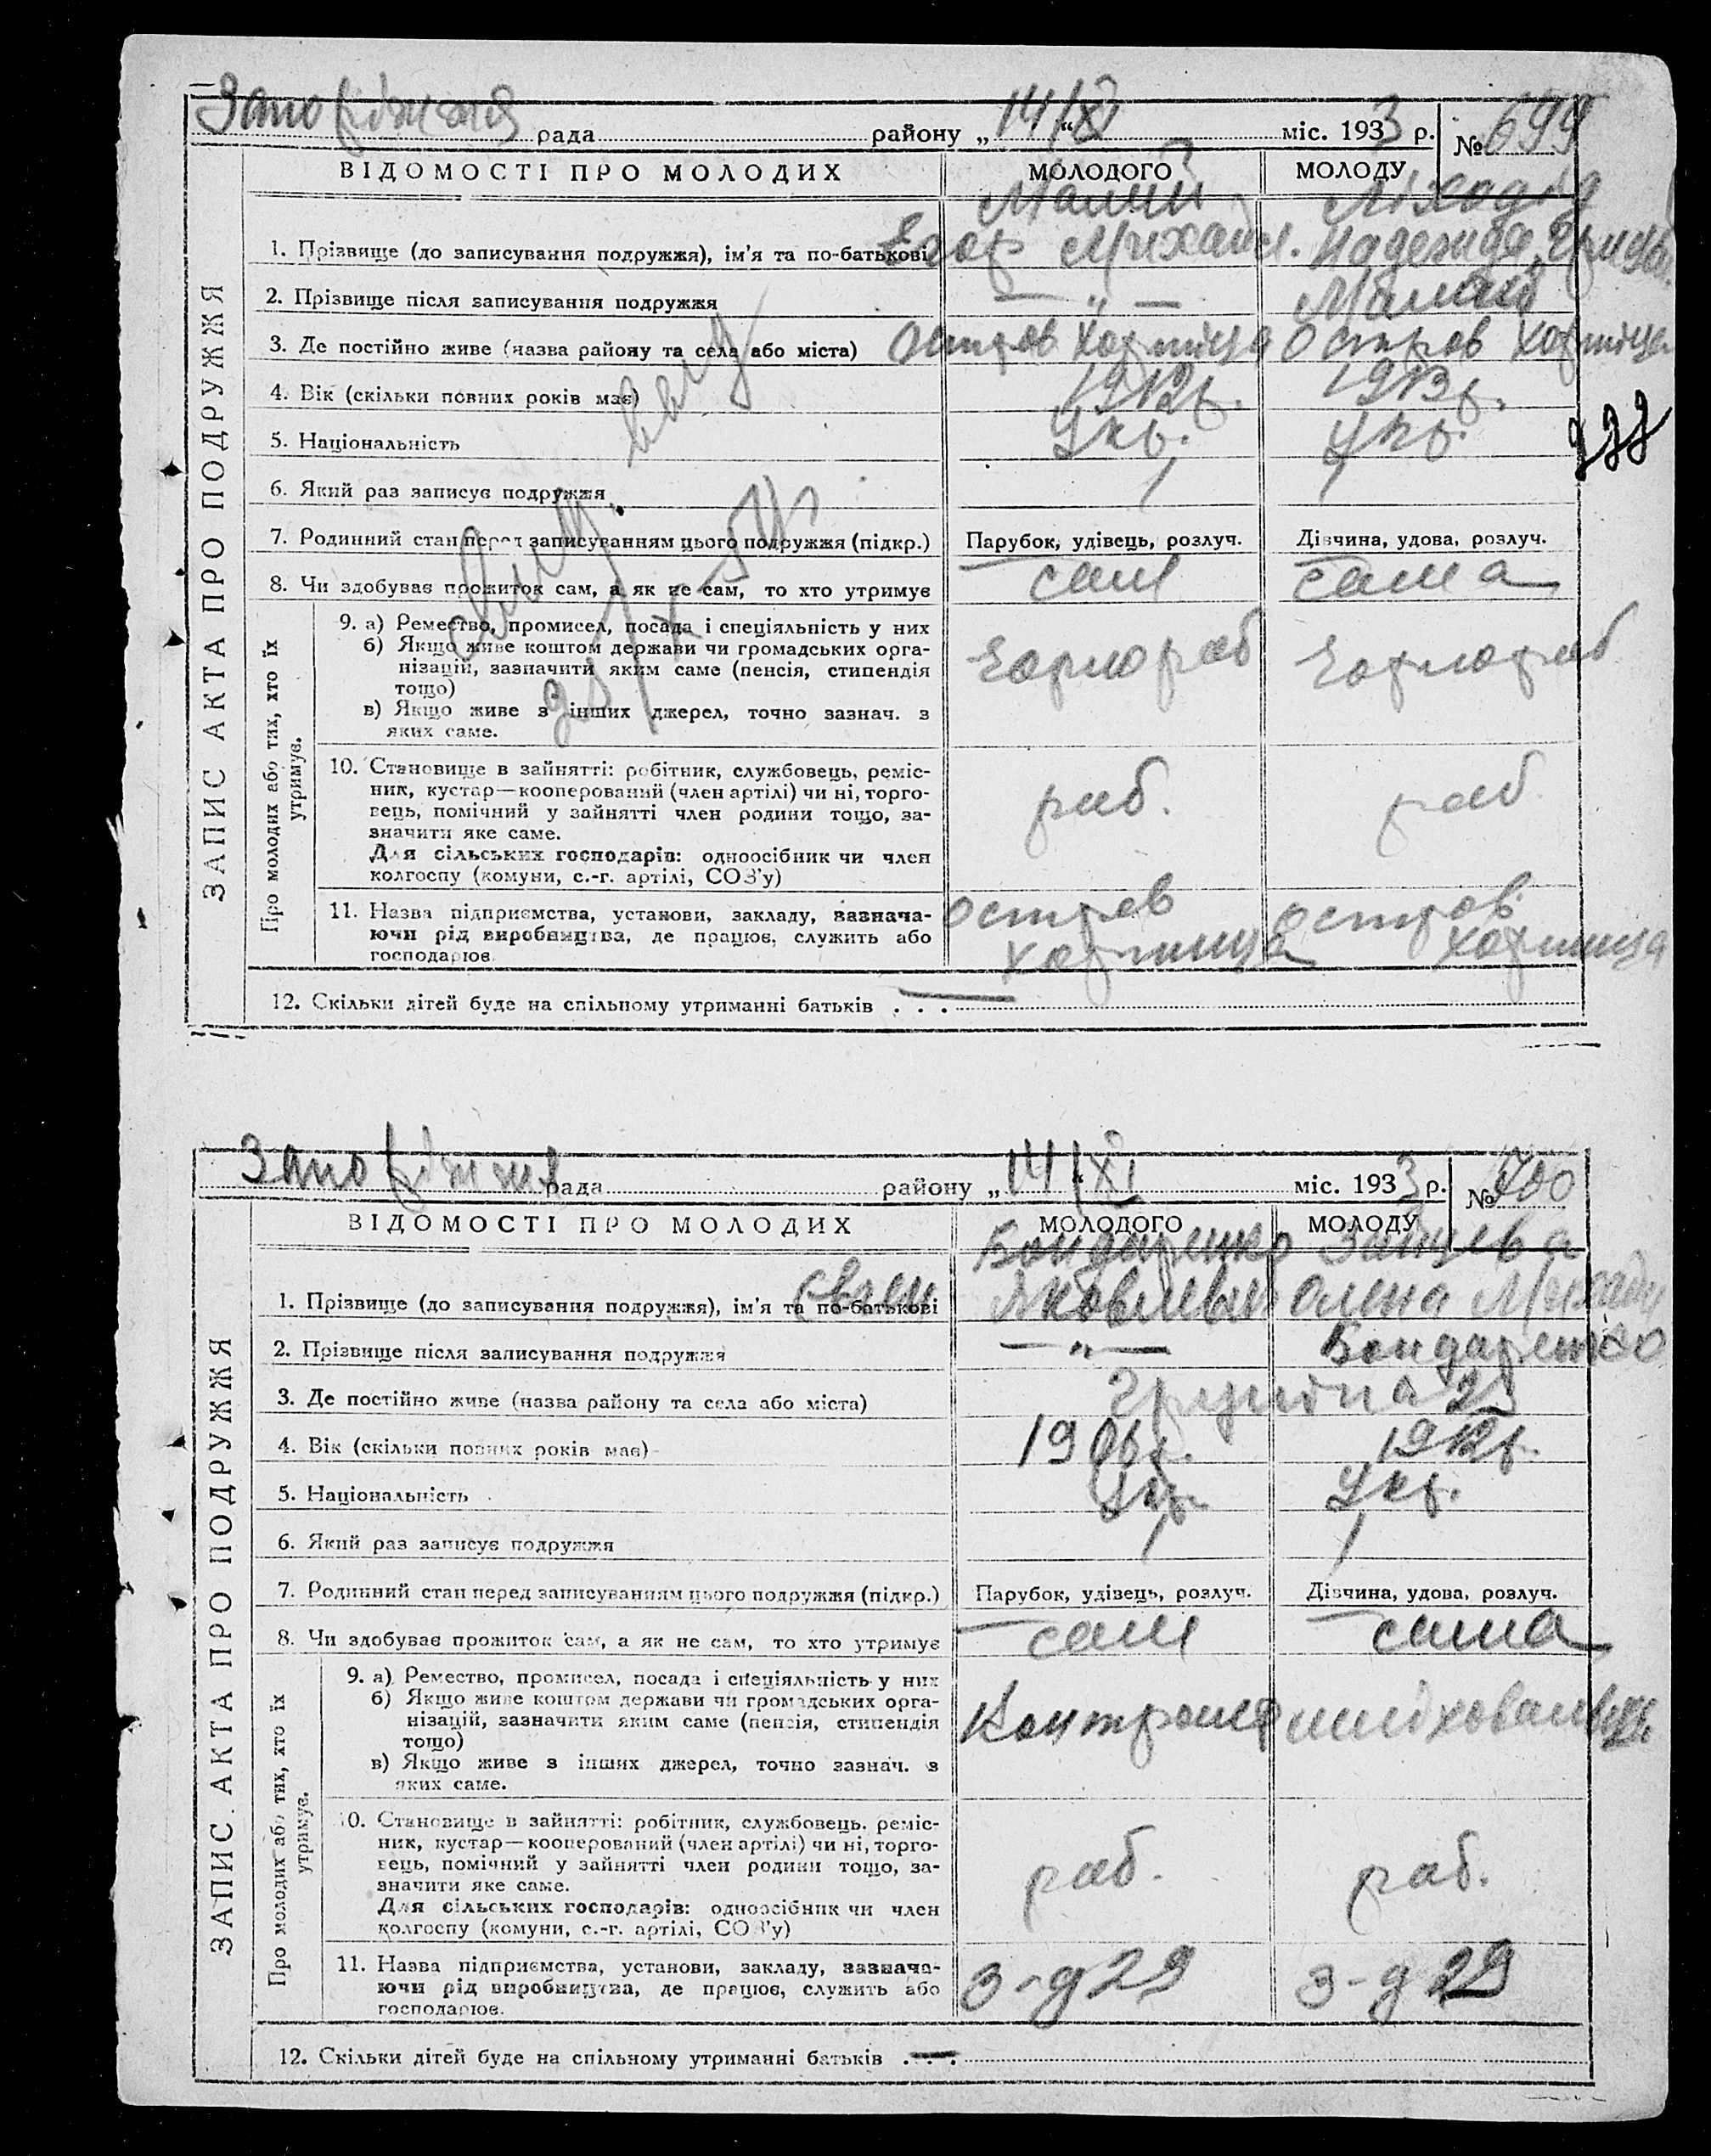 Запоріжжя рада району „14/XI“ міс. 1933 р. № 699
ЗАПИС АКТА ПРО ПОДРУЖЖЯ
ВІДОМОСТІ ПРО МОЛОДИХ МОЛОДОГО МОЛОДУ
Малий
1. Прізвище (до записування подружжя), ім'я та по-батькові Егор Михайл. Надежда
2. Прізвище після записування подружжя — „ — Малий
3. Де постійно живе (назва району та села або міста) Остров Хортица Остров Хортица
4. Вік (скільки повних років має) 1912р. 1913р.
5. Національність Укр. Укр.
6. Який раз записує подружжя 1 1
7. Родинний стан перед записуванням цього подружжя (підкр.) Парубок, удівець, розлуч. Дівчина, удова, розлуч.
8. Чи здобуває прожиток сам, а як не сам, то хто утримує сам сама
Про молодих або тих, хто їх утримує.
9. а) Ремество, промисел, посада і спеціяльність у них
б) Якщо живе коштом держави чи громадських орга-
нізацій, зазначити яким саме (пенсія, стипендія
тощо)
Чорнороб Чорнороб
в) Якщо живе з інших джерел, точно зазнач. з
яких саме.
10. Становище в зайнятті: робітник, службовець, реміс-
ник, кустар—кооперований (член артілі) чи ні, торго-
вець, помічний у зайнятті член родини тощо, за-
значити яке саме.
раб. раб.
Для сільських господарів: одноосібник чи член
колгоспу (комуни, с.-г. артілі, СОЗ'у)
11. Назва підприємства, установи, закладу, зазнача-
ючи рід виробництва, де працює, служить або
господарює
остров Хортица остров Хортица
12. Скільки дітей буде на спільному утриманні батьків . . . —
222
Запоріжжя рада району „14/XI“ міс. 1933 р. № 700
ЗАПИС АКТА ПРО ПОДРУЖЖЯ
ВІДОМОСТІ ПРО МОЛОДИХ МОЛОДОГО МОЛОДУ
Бондаренко Зайцева
1. Прізвище (до записування подружжя), ім'я та по-батькові Яковлевич Олена
2. Прізвище після записування подружжя — „ — Бондаренко
3. Де постійно живе (назва району та села або міста) 25
4. Вік (скільки повних років має) 1906р. 1912р.
5. Національність Укр. Укр.
6. Який раз записує подружжя 1 1
7. Родинний стан перед записуванням цього подружжя (підкр.) Парубок, удівець, розлуч. Дівчина, удова, розлуч.
8. Чи здобуває прожиток сам, а як не сам, то хто утримує сам сама
Про молодих або тих, хто їх утримує.
9. а) Ремество, промисел, посада і спеціяльність у них
б) Якщо живе коштом держави чи громадських орга-
нізацій, зазначити яким саме (пенсія, стипендія
тощо)
Контролер шліховальниця
в) Якщо живе з інших джерел, точно зазнач. з
яких саме.
10. Становище в зайнятті: робітник, службовець, реміс-
ник, кустар—кооперований (член артілі) чи ні, торго-
вець, помічний у зайнятті член родини тощо, за-
значити яке саме.
раб. раб.
Для сільських господарів: одноосібник чи член
колгоспу (комуни, с.-г. артілі, СОЗ'у)
11. Назва підприємства, установи, закладу, зазнача-
ючи рід виробництва, де працює, служить або
господарює.
З-д 29 З-д 29
12. Скільки дітей буде на спільному утриманні батьків . . . —